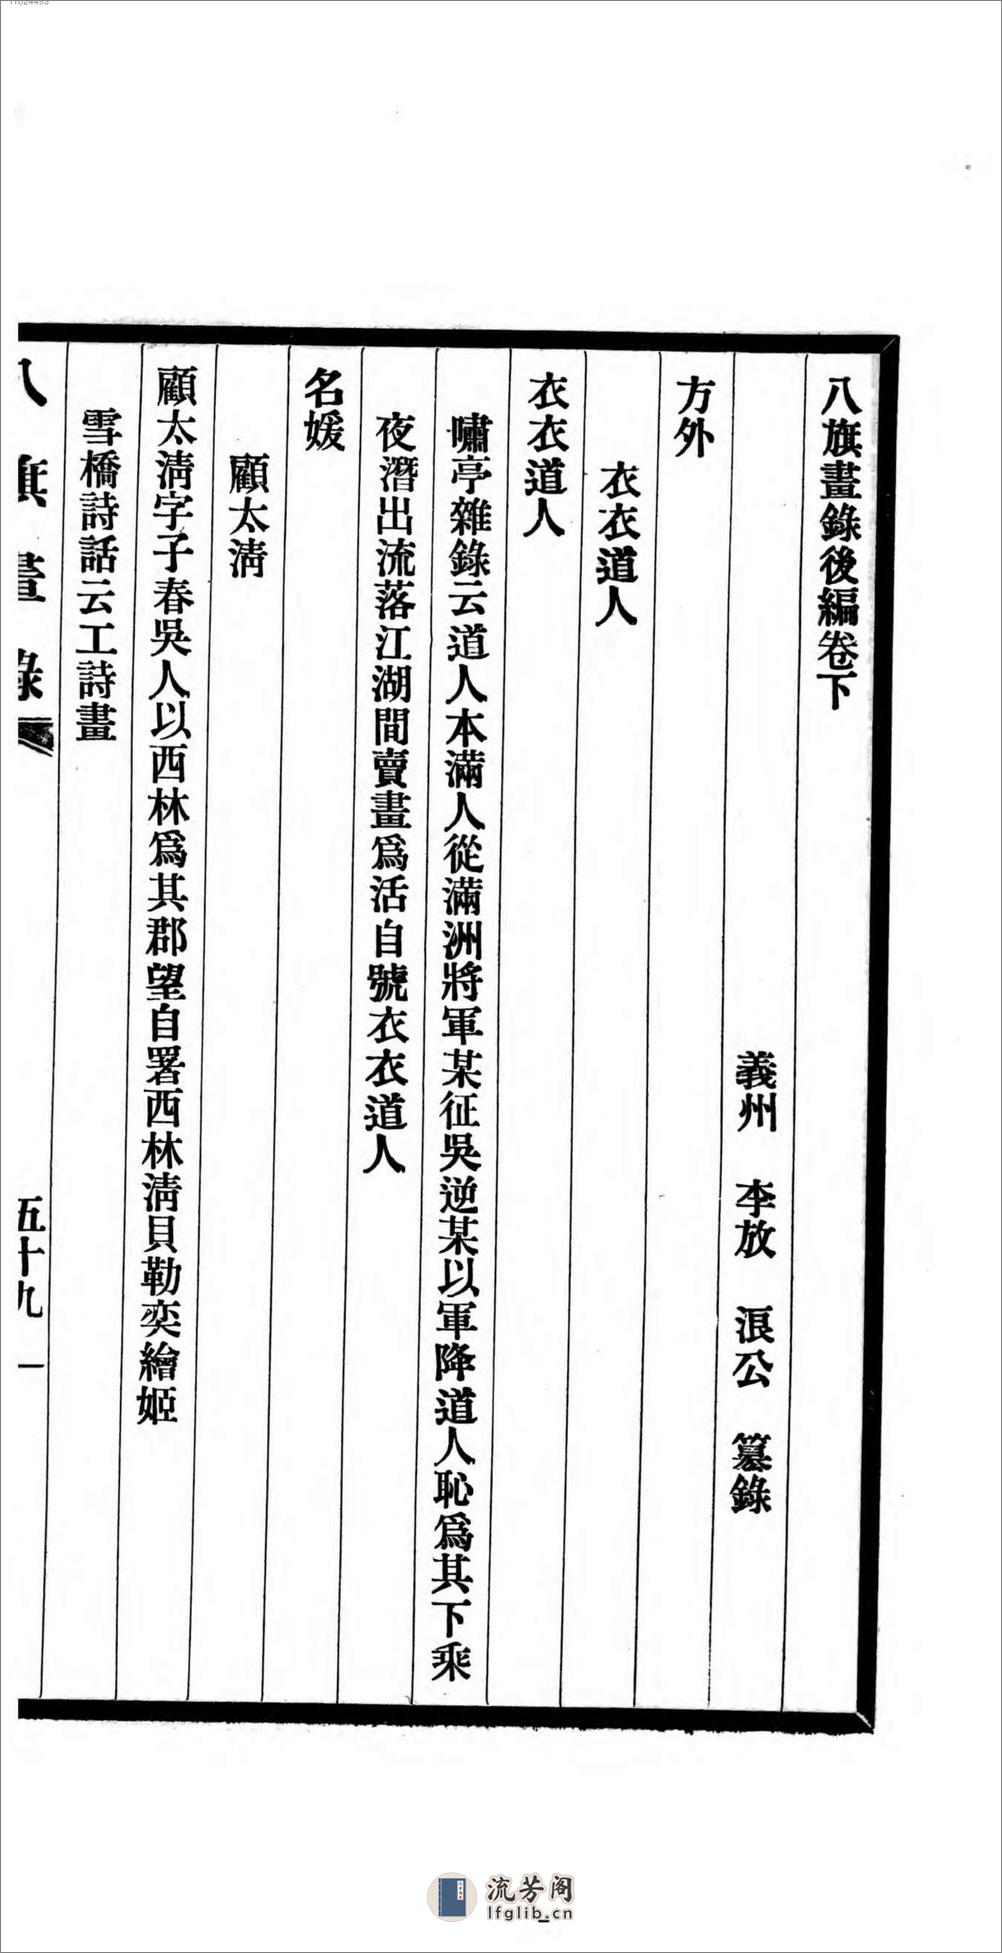 八旗畫錄後編卷下
義州 李放 浪公 篹錄
方外
衣衣道人
衣衣道人
嘯亭雜錄云道人本滿人從滿洲將軍某征吳逆某以軍降道人恥爲其下乘
夜潛出流落江湖間賣畫爲活自號衣衣道人
名媛
顧太淸
顧太淸字子春吳人以西林爲其郡望自署西林淸貝勒奕繪姬
雪橋詩話云工詩畫
八旗畫錄 五十九
流芳阁
lfglib.cn